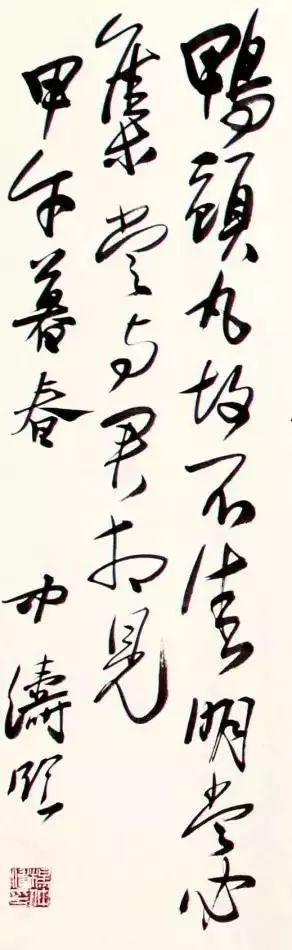 鴨頭丸故不佳明當必
集當与君相見
甲午暮春
濤臨